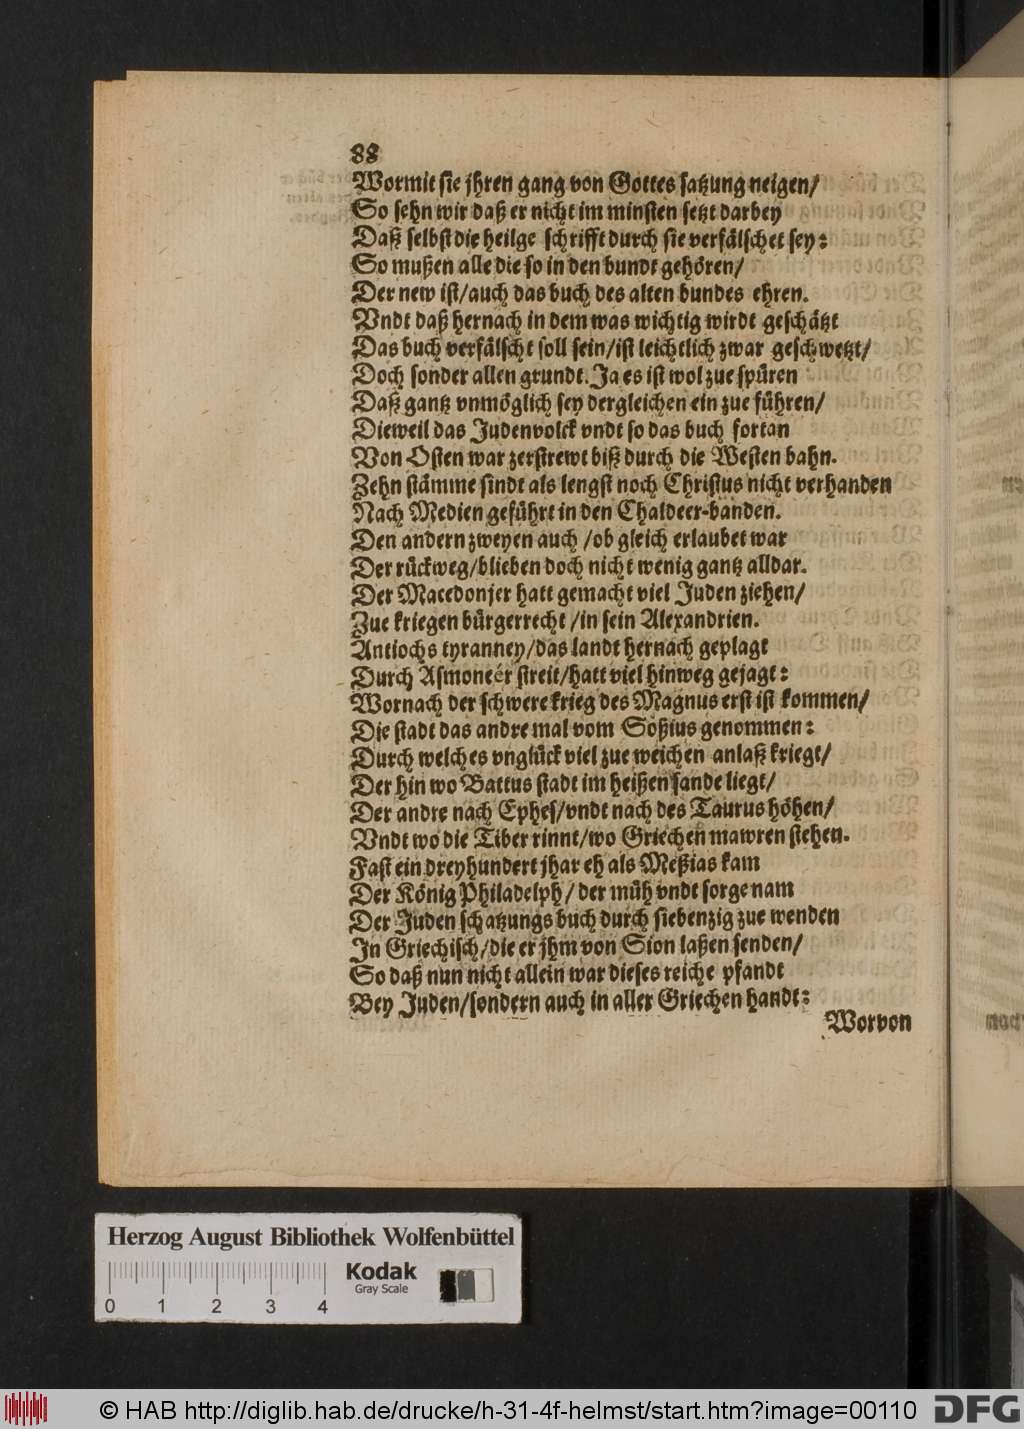 88
Wormit sie jhren gang von Gottes satzung neigen/
So sehn wir daß er nicht im minsten setzt darbey
Daß selbst die heilge schrifft durch sie verfälschet sey:
So mußen alle die so in den bundt gehören/
Der new ist/auch das buch des alten bundes ehren.
Vndt daß hernach in dem was wichtig wirdt geschätzt
Das buch verfälscht soll sein/ist leichtlich zwar geschwetzt/
Doch sonder allen grundt. Ja es ist wol zue spüren
Daß gantz vnmöglich sey dergleichen ein zue führen/
Dieweil das Judenvolck vndt so das buch fortan
Von Osten war zerstrewt biß durch die Westen bahn.
Zehn stämme sindt als lengst noch Christus nicht verhanden
Nach Medien geführt in den Chaldeer-banden.
Den andern zweyen auch /ob gleich erlaubet war
Der rückweg/blieben doch nicht wenig gantz alldar.
Der Macedonjer hatt gemacht viel Juden ziehen/
Zue kriegen bürgerrecht /in sein Alexandrien.
Antiochs tyranney/das landt hernach geplagt
Durch Asmoneér streit/hatt viel hinweg gejagt:
Wornach der schwere krieg des Magnus erst ist kommen/
Die stadt das andre mal vom Soßius genommen:
Durch welches vnglück viel zue weichen anlaß kriegt/
Der hin wo Battus stadt im heißen sande liegt/
Der andre nach Ephes/vndt nach des Taurus höhen/
Vndt wo die Tiber rinnt/wo Griechen mawren stehen.
Fast ein dreyhundert jhar eh als Meßias kam
Der König Philadelph/ der müh vndt sorge nam
Der Juden schatzungs buch durch siebenzig zue wenden
In Griechisch/die er jhm von Sion laßen senden/
So daß nun nicht allein war dieses reiche pfandt
Bey Juden/sondern auch in aller Griechen handt:
Worvon
Herzog August Bibliothek Wolfenbüttel
0 1 2 3 4
Kodak
Gray Scale
© HAB http://diglib.hab.de/drucke/h-31-4f-helmst/start.htm?image=00110
DFG